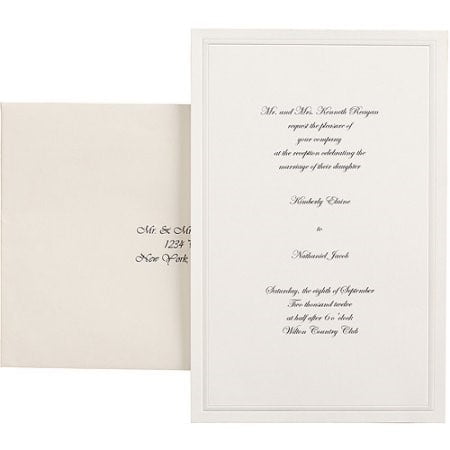 Mr. and Mrs. Kenneth Reagan
request the pleasure of
your company
at the reception celebrating the
marriage of their daughter
Kimberly Elaine
to
Nathaniel Jacob
Saturday, the eighth of September
Two thousand twelve
at half after 6 o'clock
Wilton Country Club
Mr. & Mr
1234
New York